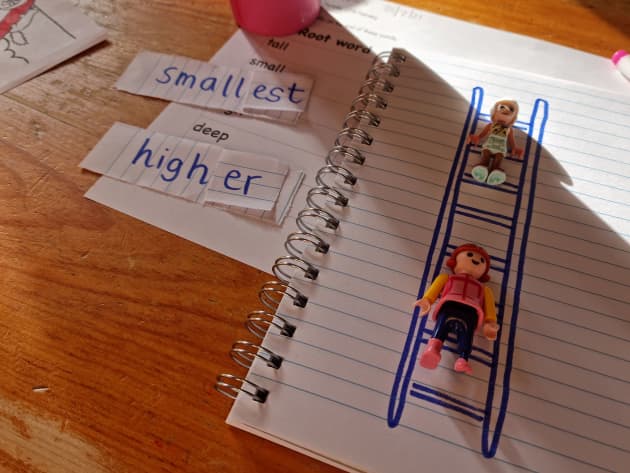 Root word
tall
small
smallest
deep
higher